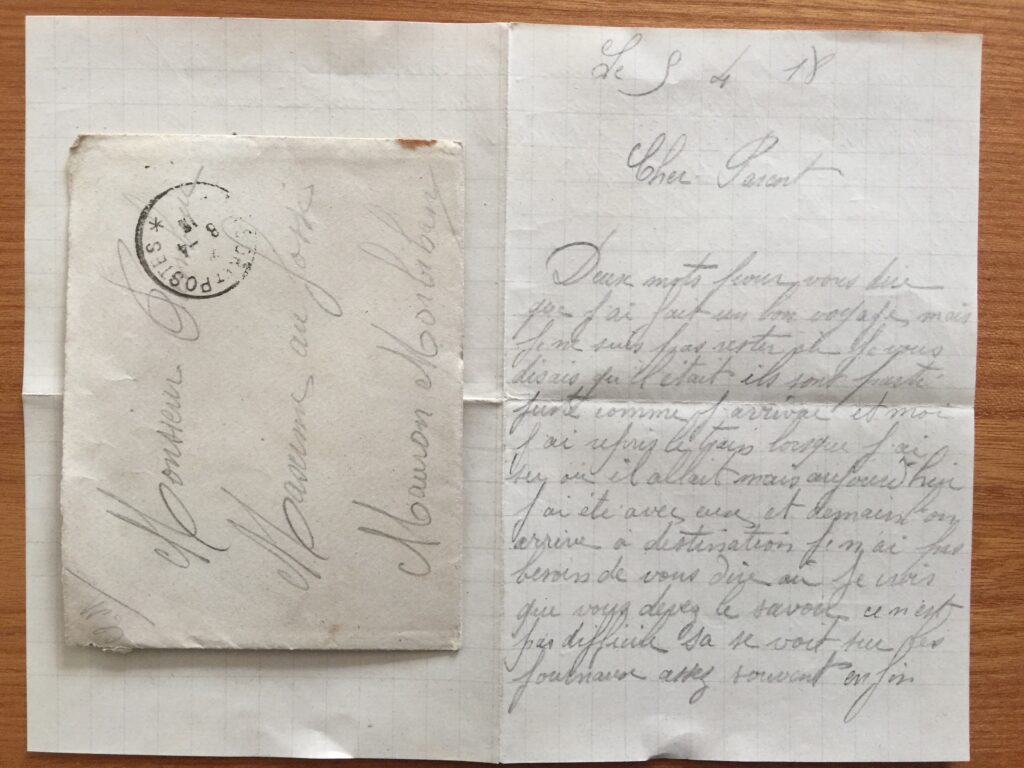 Monsieur
Maxime au Fossé
Mauron Morbihan
FM
TRÉSOR ET POSTES
14
8
Le 5 4 18
Cher Parent
Deux mots pour vous dire
que j'ai fait un bon voyage mais
je ne suis pas rester ou je vous
disais qu'il était ils sont parti
juste comme j'arrivae et moi
j'ai repris le train lorsque j'ai
seu ou il allait mais aujourd'hui
j'ai été avec eux et demain on
arrive a destination je n'ai pas
besoin de vous dire ou je vais
que vous devez le savoir ce n'est
pas difficile sa se voit sur les
journaux assez souvent enfin